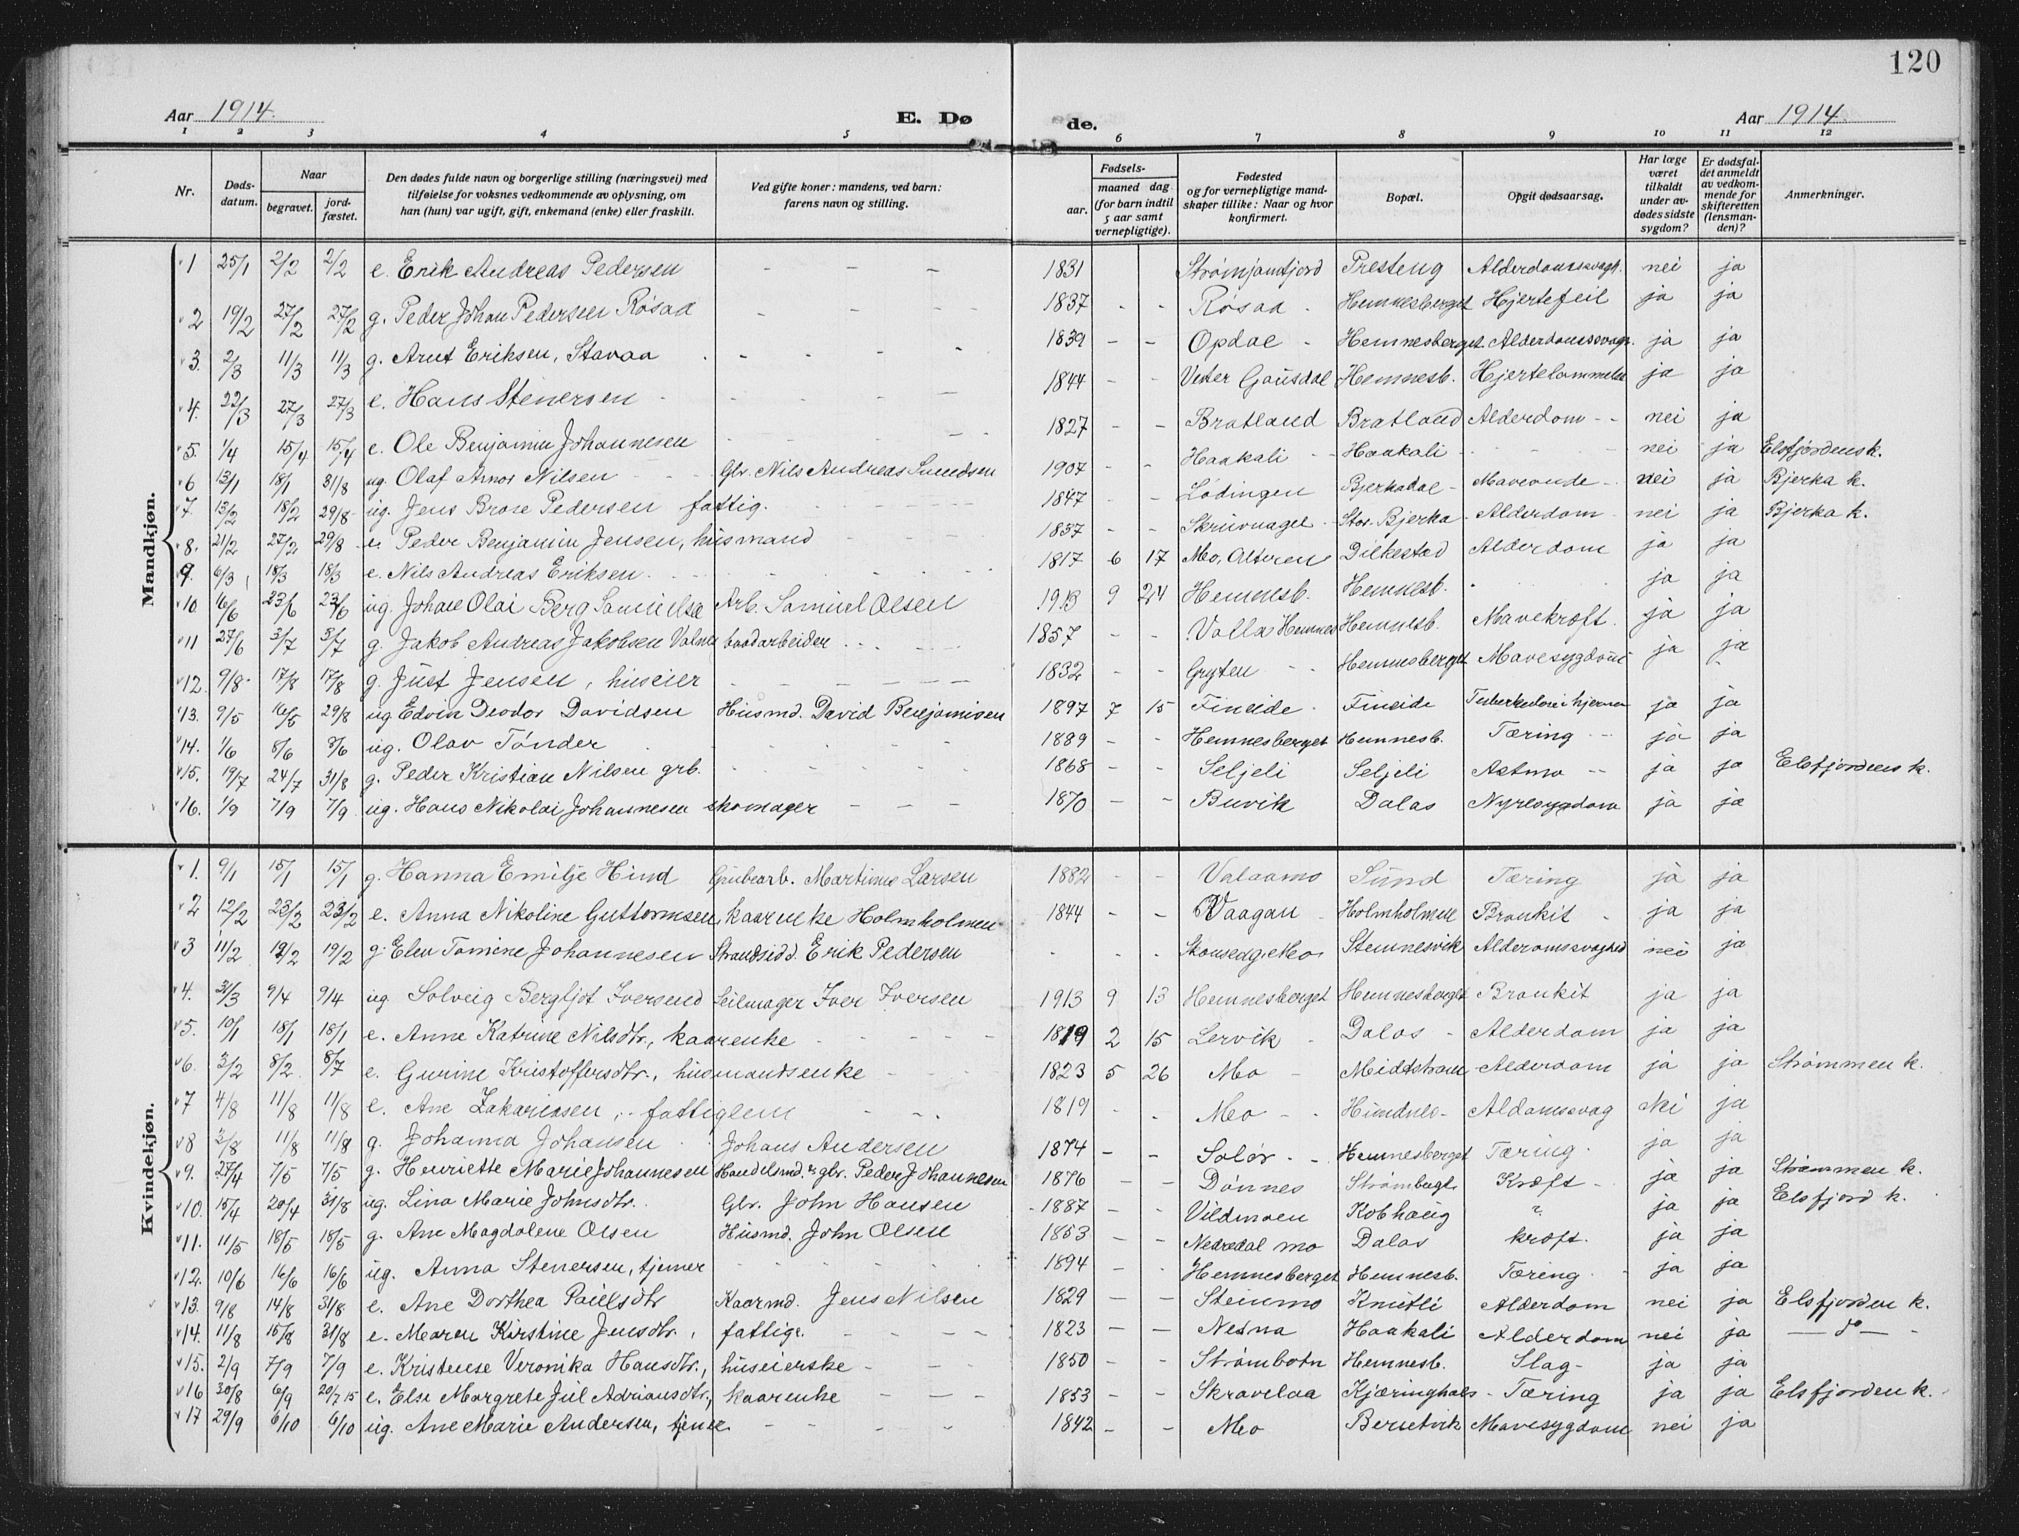 120
Aar 1914. E. Dø de. Aar 1914.
1 2 3 4 5 6 7 8 9 10 11 12
Nr. Døds-datum. Naar begravet. jord-fæstet. Den dødes fulde navn og borgerlige stilling (næringsvei) med tilføielse for voksnes vedkommende av oplysning, om han (hun) var ugift, gift, enkemand (enke) eller fraskilt. Ved gifte koner: mandens, ved barn: farens navn og stilling. Fødsels- aar. maaned dag (for barn indtil 5 aar samt vernepligtige). Fødested og for vernepligtige mandskaper tillike: Naar og hvor konfirmert. Bopæl. Opgit dødsaarsag. Har læge været tilkaldt under avdødes sidste sygdom? Er dødsfaldet anmeldt av vedkommende for skifteretten (lensmanden)? Anmerkninger.
Mandkjøn.
1 25/1 2/2 2/2 e. Erik Andreas Pedersen - - - 1831 Strømjamtfjord Presteng Alderdomssvagh. nei ja
2 19/2 27/2 27/2 g. Peder Johan Pedersen Røsaa - - - 1837 - - Røsaa - Hemnesberget Hjertefeil ja ja
3. 2/3 11/3 11/3 g. Arnt Eriksen, Stavaa - - - 1839 - - Opdal - Hemnesberget Alderdomssvagh. ja ja
4. 22/3 27/3 27/3 e. Hans Stenersen - - - 1844 - - Vester Gausdal Hemnesb. Hjertelammelse ja ja
5. 1/4 15/4 15/4 e. Ole Benjamin Johannesen - - - 1827 - - Bratland Bratland Alderdom -- nei ja
6 13/1 18/1 31/8 ug. Olaf Arnor Nilsen - Gbr. Nils Andreas Svendsen 1907 - - Haakali - Haakali - - - nei ja Elsfjordens k.
7. 13/2 18/2 29/8 - ug. Jens Brose Pedersen fattig. - - - 1847 - - Lødingen Bjerkadal - Maveonde - nei ja Bjerka k.
8. 21/2 27/2 29/8 - e. Peder Benjamin Jensen, husmand - - - 1837 - - Skruvnaget - Stor. Bjerka - Alderdom - nei ja Bjerka k.
9. 6/3 18/3 18/3 e. Nils Andreas Eriksen. - - - 1817 6 17 Mo, Alteren Dilkestad Alderdom ja ja
10 16/6 23/6 23/6 ug. Johan Olai Berg Samuelse Arb. Samuel Olsen 1913 9 24 Hemnesb. Hemnesb. - ja ja
11 27/6 3/7 3/7 g. Jakob Andreas Jakobsen baadarbeider - - - 1857 - - Valla Hemnes Hemnesb. Mavekræft. ja ja
12. 9/8 - 17/8 17/8 g. Just Jensen, huseier - - - 1832 - - Gryten - - Hemnesberget Mavesygdom ja ja
13. 9/5 16/5 29/8 ug Edvin Deodor Davidsen Husmd. David Benjaminsen 1897 7 15 Fineide - Fineide Tuberkulose i hjernen ja ja
14. 1/6 8/6 8/6 ug. Olav Tønder - - - 1889 - - Hemnesberget Hemnesb. Tæring -- ja ja
15. 19/7 24/7 31/8 g. Peder Kristian Nilsen grb. - - - 1868 - - Seljeli Seljeli Astma -- ja ja Elsfjordens k.
16. 1/9 7/9 7/9 ug. Hans Nikolai Johannesen skomager - - - 1870 - - Buvik Dalas Nyresygdom ja ja
Kvindekjøn.
1. 9/1 15/1 15/1 g. Hanna Emilje Hind Grubearb. Martinus Larsen 1882 - - Valaamo Sund Tæring ja ja
2 12/2 23/2 23/2 e. Anna Nikoline Guttormsen, kaarenke Holmholmen 1844 - - Vaagan - Holmholmen Bronkit - ja ja
3 11/2 19/2 19/2 g. Elen Tomine Johannesen Strandsidd. Erik Pedersen - - - Mo - Stemnesvik Alderomssvaghed nei ja
4. 31/3 9/4 9/4 ug. Solveig Bergljot Iversen Seilmager Iver Iversen 1913 9 13 Hemnesberget Hemnesberget Bronkit ja ja
5. 10/1 18/1 18/1 e. Anne Katrine Nilsdtr., kaarenke - - - 1819 2 15 Lervik - Dalas - Alderdom ja ja
6. 3/2 8/2 8/7 e. Gurine Kristoffersdtr., husmandsenke - - 1823 5 26 Mo - Midtstraum - Alderdom ja ja Strømmen k.
7 4/8 11/8 11/8 e. Ane Zakariassen, fattiglem - - - 1819 - - Mo - - Hundnes - Aldomssvag Nei ja
8 3/8 11/8 11/8 g. Johanna Johansen - Johans Andersen 1874 - - Solør - - Hemnesberget Tæring. ja ja
9. 27/4 7/5 7/5 g. Henriette Marie Johannesen Handelsmd. & gbr. Peder Johannesen 1876 - - Dønnes Strømbugt. Kræft - ja ja Strømmen k.
10. 15/4 20/4 31/8 ug. Lina Marie Johnsdtr. Gbr. John Hansen - 1887 - - Vildmoen Kobhaug ? ja ja Elsfjord k.
11. 11/5 18/5 18/5 g. Ane Magdalene Olsen Husmd. John Olsen 1853 - - Nedredal mo Dalas kræft. ja ja
12. 10/6 16/6 16/6 ug. Anna Stenersen, tjener - - - 1894 - - Hemnesberget Hemnesb. Tæring - ja ja
13. 9/8 14/8 31/8 e. Ane Dorthea Paulsdtr Kaarmd. Jens Nilsen 1829 - - Steinmo Knutli Alderdom nei ja Elsfjorden k.
14. 11/8 15/8 31/8 e. Maren Kirstine Jensdtr., fattige. - - - 1823 - - Nesna Haakali Alderdom nei ja - do -
15. 2/9 7/9 7/9 e. Kristense Veronika Hansdtr., huseierske - - - 1850 - - Strømbotn Hemnesb. Slag - ja ja
16 30/8 6/9 20/7 15 e. Else Margrete Jul Adriansdtr., kaarenke - - - 1853 - - Skravelaa Kjæringhals - Tæring ja ja Elsfjorden k.
17 29/9 6/10 6/10 ug. Ane Marie Andersen, tjener - - - 1842 - - Mo Bersetvik Mavesygdom nei ja